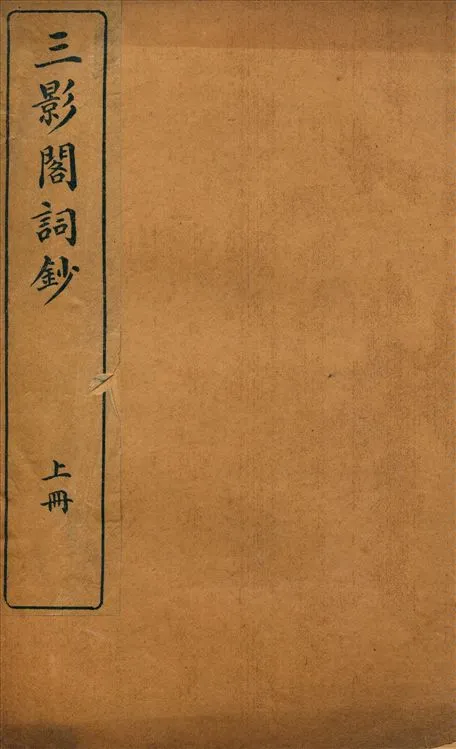 三影閣詞鈔
上冊